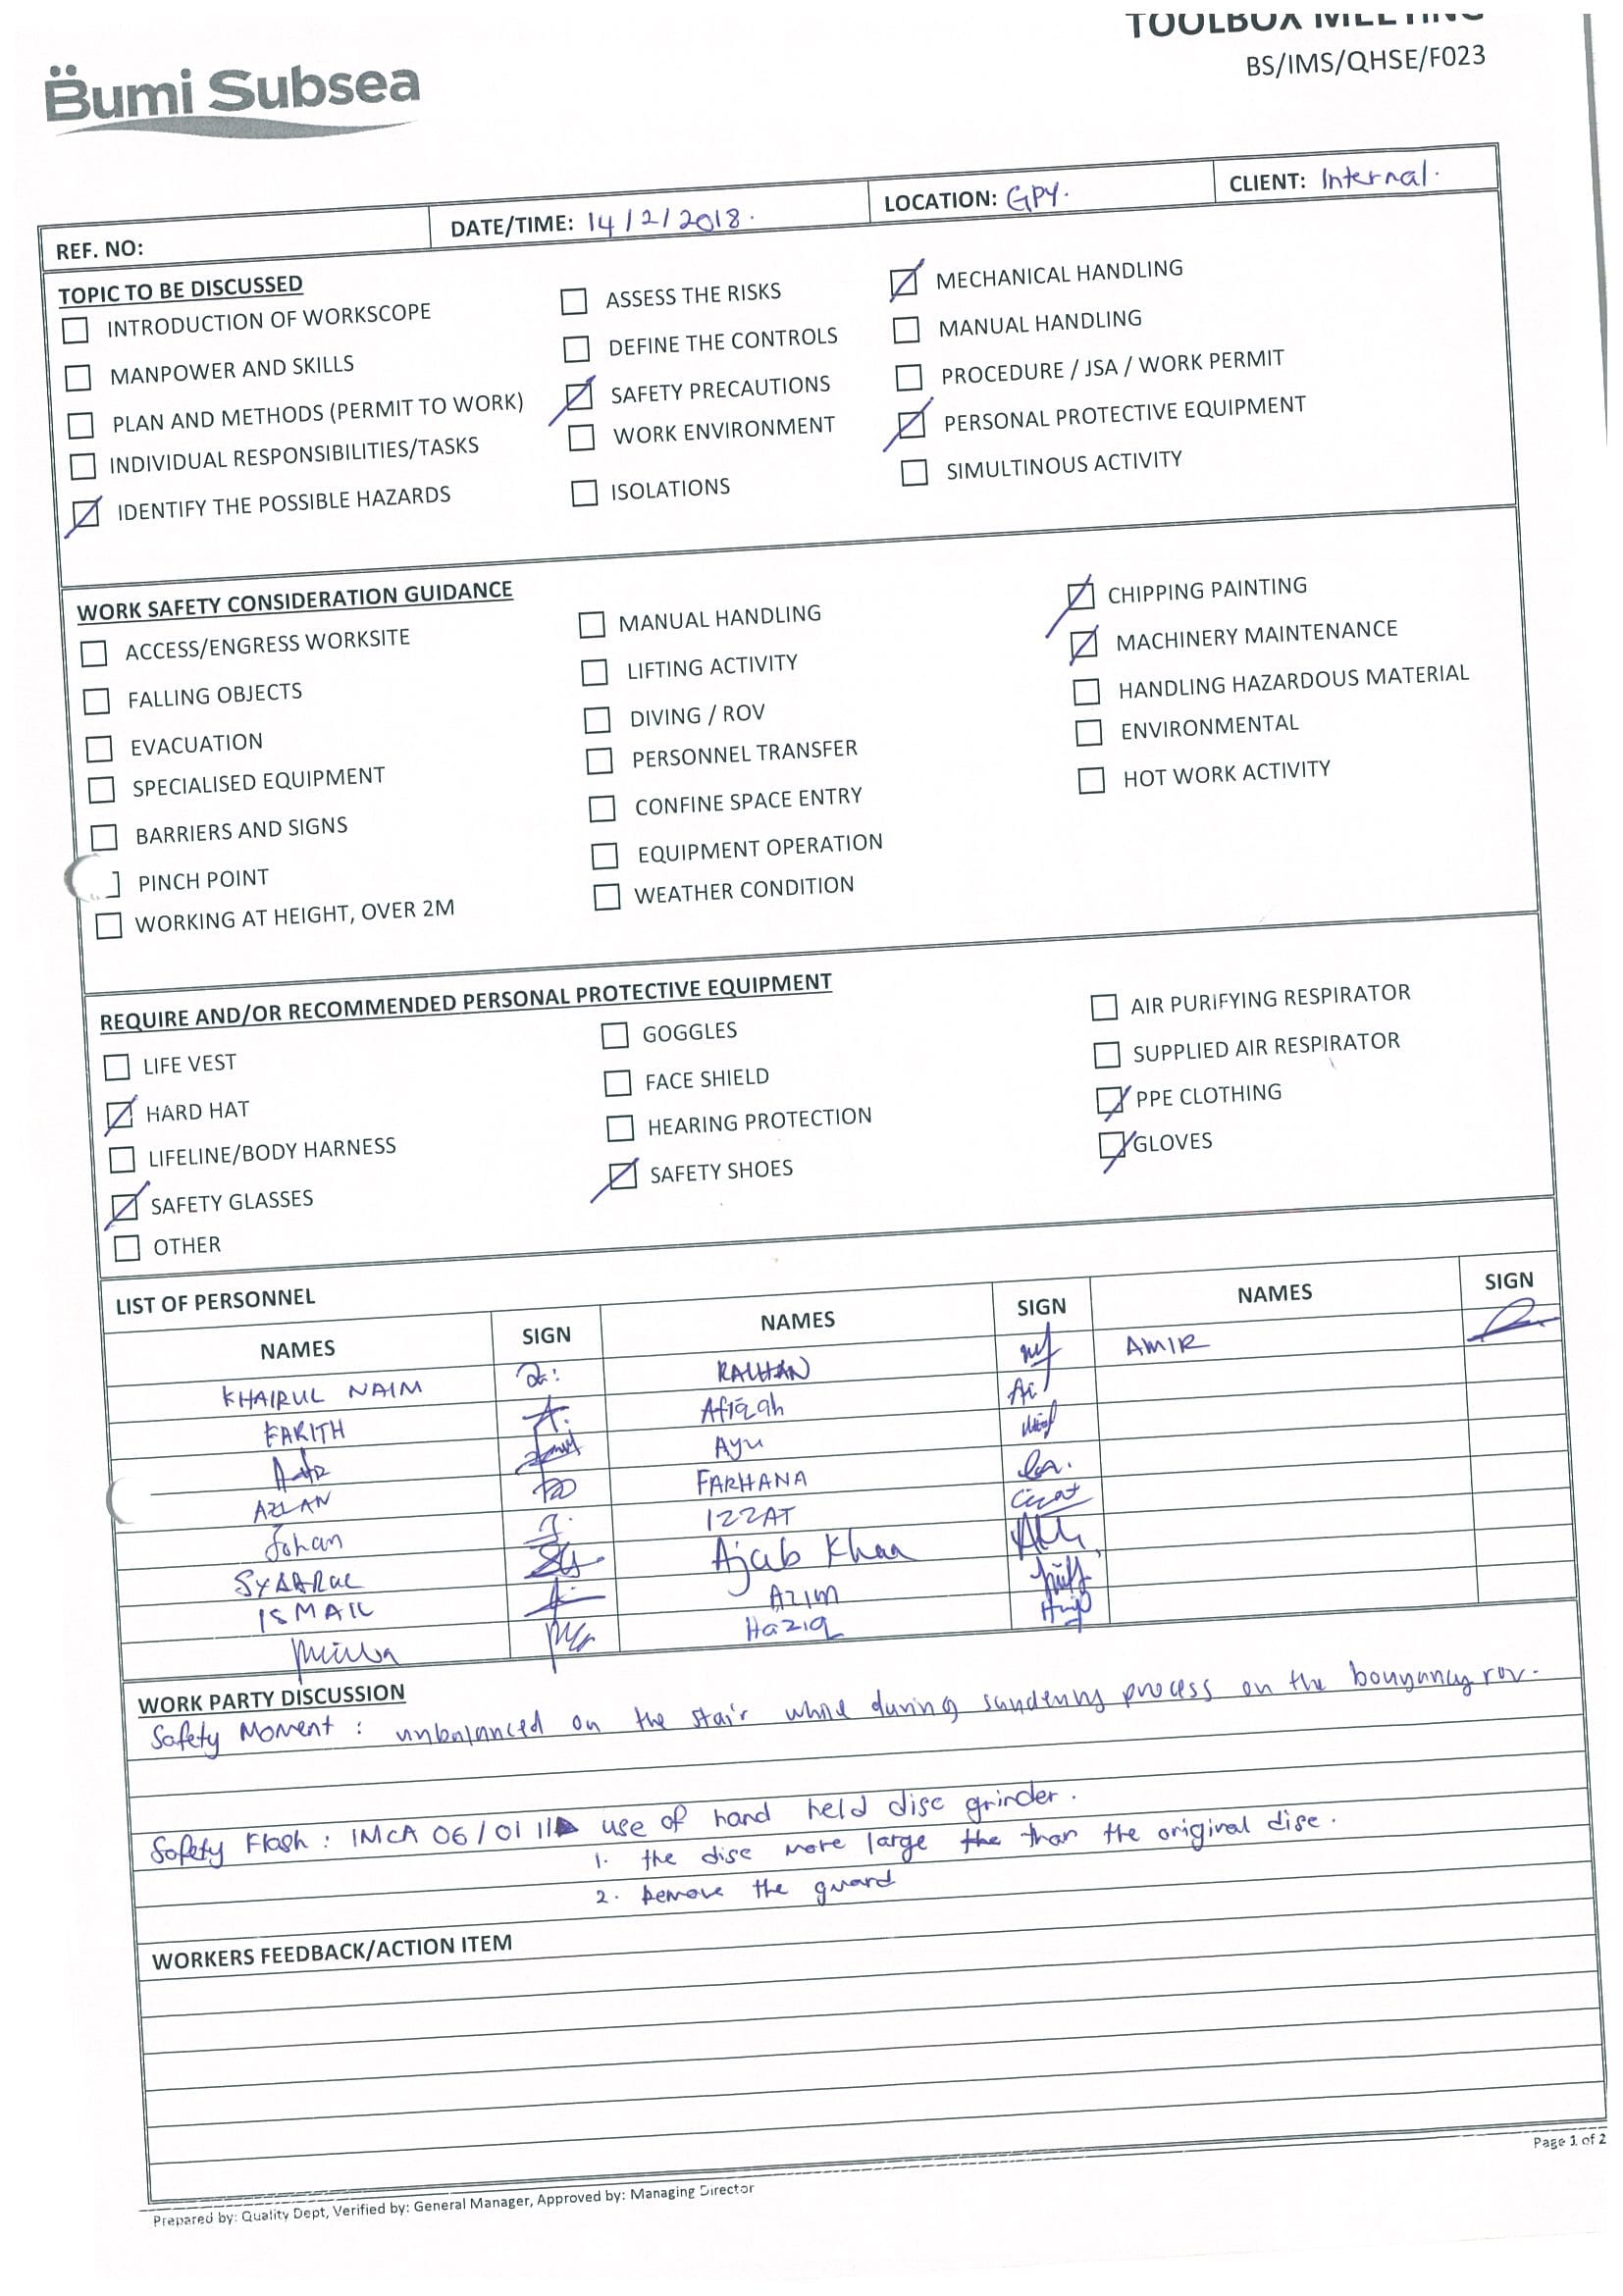 TOOLBOX MEETING
BS/IMS/QHSE/F023
Bumi Subsea
REF. NO:
DATE/TIME: 14/2/2018.
LOCATION: GPY.
CLIENT: Internal.
TOPIC TO BE DISCUSSED
INTRODUCTION OF WORKSCOPE
MANPOWER AND SKILLS
PLAN AND METHODS (PERMIT TO WORK)
INDIVIDUAL RESPONSIBILITIES/TASKS
IDENTIFY THE POSSIBLE HAZARDS
ASSESS THE RISKS
DEFINE THE CONTROLS
SAFETY PRECAUTIONS
WORK ENVIRONMENT
ISOLATIONS
MECHANICAL HANDLING
MANUAL HANDLING
PROCEDURE / JSA / WORK PERMIT
PERSONAL PROTECTIVE EQUIPMENT
SIMULTINOUS ACTIVITY
WORK SAFETY CONSIDERATION GUIDANCE
ACCESS/ENGRESS WORKSITE
FALLING OBJECTS
EVACUATION
SPECIALISED EQUIPMENT
BARRIERS AND SIGNS
PINCH POINT
WORKING AT HEIGHT, OVER 2M
MANUAL HANDLING
LIFTING ACTIVITY
DIVING / ROV
PERSONNEL TRANSFER
CONFINE SPACE ENTRY
EQUIPMENT OPERATION
WEATHER CONDITION
CHIPPING PAINTING
MACHINERY MAINTENANCE
HANDLING HAZARDOUS MATERIAL
ENVIRONMENTAL
HOT WORK ACTIVITY
REQUIRE AND/OR RECOMMENDED PERSONAL PROTECTIVE EQUIPMENT
LIFE VEST
HARD HAT
LIFELINE/BODY HARNESS
SAFETY GLASSES
OTHER
GOGGLES
FACE SHIELD
HEARING PROTECTION
SAFETY SHOES
AIR PURIFYING RESPIRATOR
SUPPLIED AIR RESPIRATOR
PPE CLOTHING
GLOVES
LIST OF PERSONNEL
NAMES SIGN NAMES SIGN NAMES SIGN
KHAIRUL NAIM
FAKITH
AZLAN
Johan
SYAARUL
ISMAIL
RAIHAN
Afiqah
Ayu
FARHANA
IZZAT
Ajab Khan
AZIM
Haziq
AMIR
WORK PARTY DISCUSSION
Safety Moment : unbalanced on the stair while during sandenny process on the bouyanncy rov.
Safety Flash : IMCA 06/01 use of hand held disc grinder.
1. the disc more large the than the original disc.
2. Remove the guard
WORKERS FEEDBACK/ACTION ITEM
Page 1 of 2
Prepared by: Quality Dept, Verified by: General Manager, Approved by: Managing Director